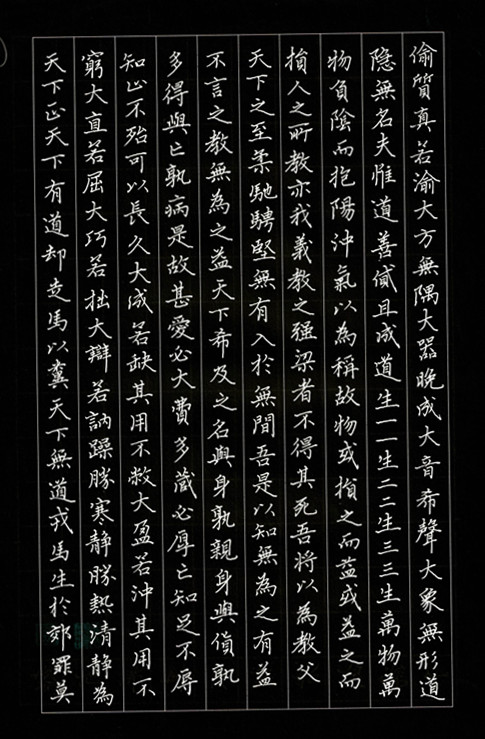 偷質真若渝大方無隅大器晚成大音希聲大象無形道
隐無名夫惟道善貸且成道生一一生二二生三三生萬物萬
物負陰而抱陽沖氣以為稱故物或損之而益或益之而
損人之所教亦我義教之强梁者不得其死吾將以為教父
天下之至柔馳騁堅無有入於無間吾是以知無為之有益
不言之教無為之益天下希及之名與身孰親身與貨孰
多得與亡孰病是故甚愛必大費多藏必厚亡知足不辱
知止不殆可以長久大成若缺其用不敝大盈若沖其用不
窮大直若屈大巧若拙大辯若訥躁勝寒靜勝熱清靜為
天下正天下有道却走馬以糞天下無道戎馬生於郊罪莫